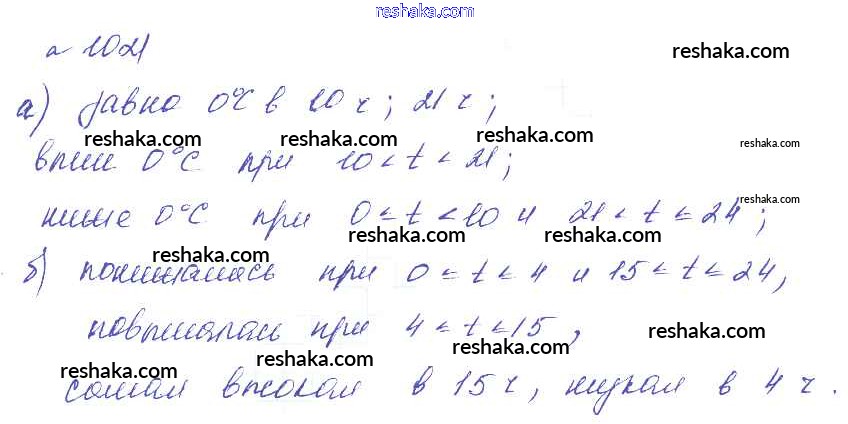 reshaka.com
№ 1021
reshaka.com
а) равно 0°C в 10 ч; 21 ч;
reshaka.com reshaka.com reshaka.com reshaka.com
выше 0°C при 10 < t < 21;
reshaka.com
ниже 0°C при 0 ≤ t < 10 и 21 < t ≤ 24;
reshaka.com reshaka.com reshaka.com
б) понижалась при 0 ≤ t ≤ 4 и 15 ≤ t ≤ 24,
повышалась при 4 ≤ t ≤ 15,
reshaka.com reshaka.com reshaka.com reshaka.com
самая высокая в 15 ч, низкая в 4 ч.